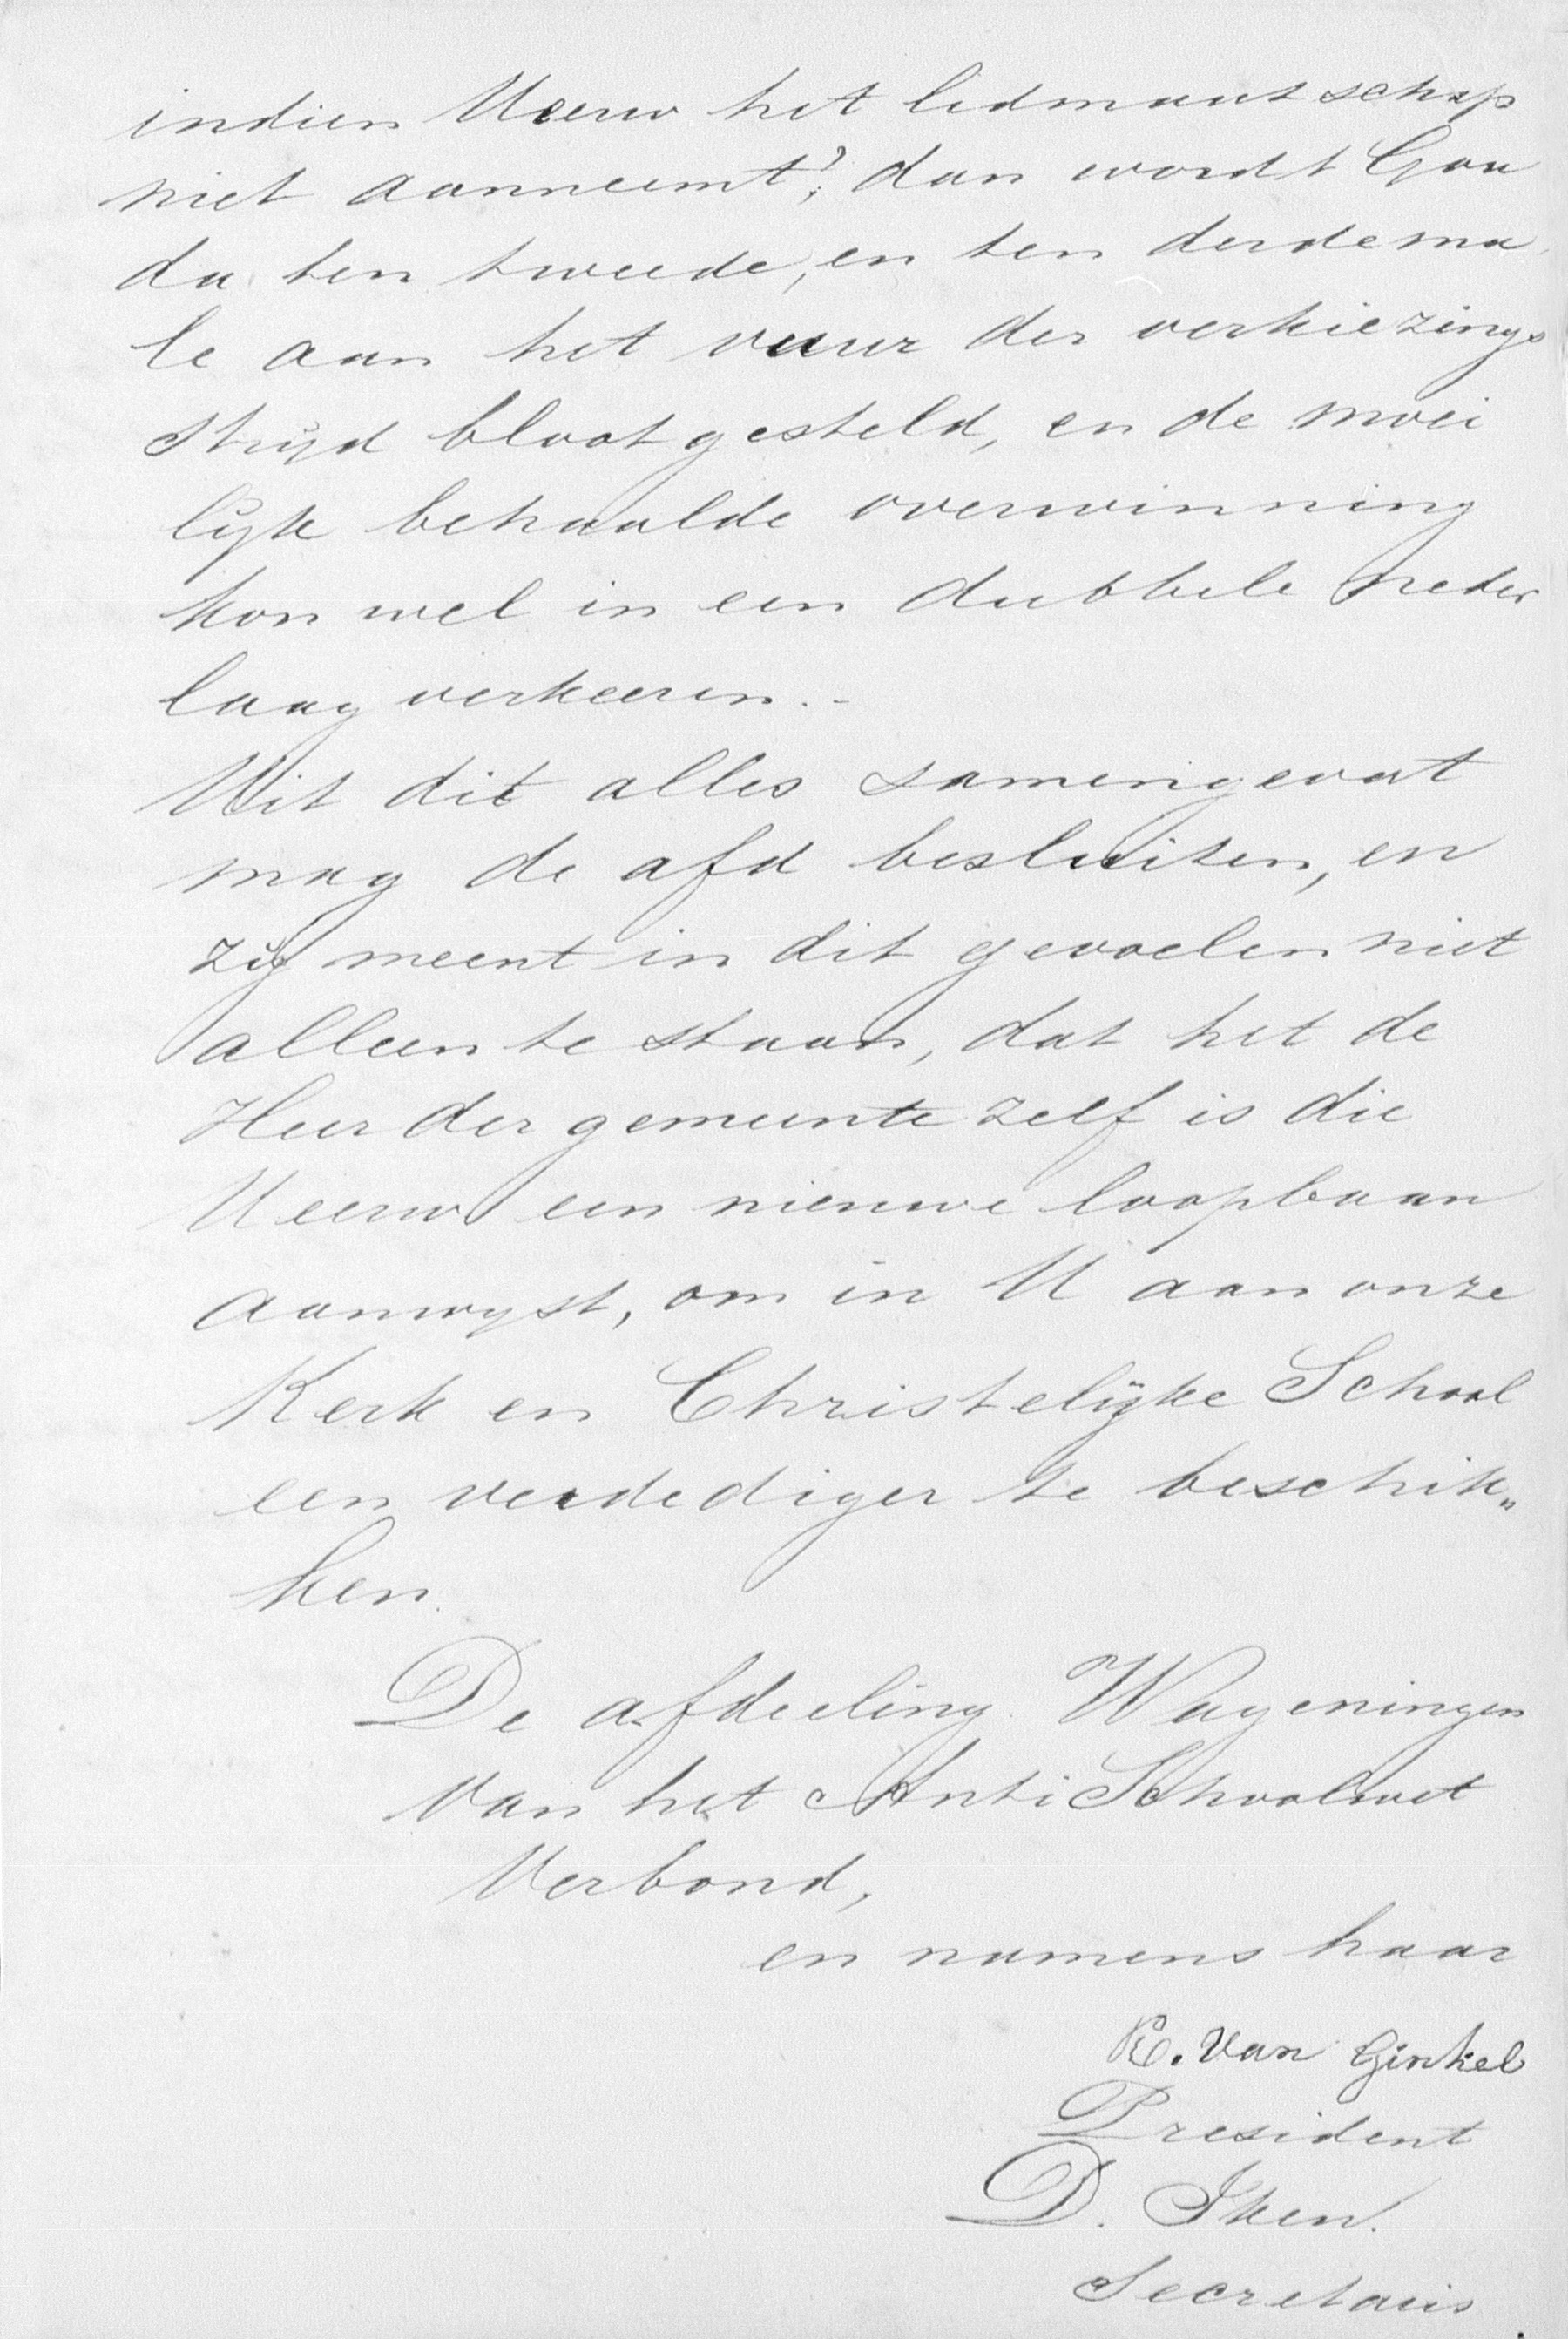 indien UEerw het lidmaatschap
niet aanneemt?, dan wordt Gou
da ten tweede, en ten derdema
le aan het vuur der verkiezings
strijd blootgesteld, en de moei
lijk behaalde overwinning
kon wel in een dubbele neder
laag verkeeren.-
Uit dit alles samengevat
mag de afd besluiten, en
zij meent in dit gevoelen niet
alleen te staan, dat het de
Heer der gemeente zelf is die
UEerw een nieuwe loopbaan
aanwijst, om in U aan onze
Kerk en Christelijke School
een verdediger te beschik„
ken.
De afdeeling Wageningen
van het Anti Schoolwet
Verbond,
en namens haar
E. van Ginkel
President
D. Iken.
Secretaris